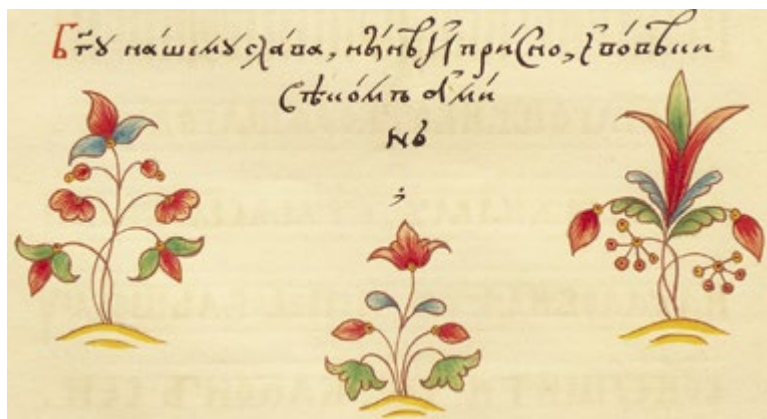 Бг҃у на́шему сла́ва, ны́нѣ И҆ при́сно, і҆ во́вѣки
вѣко́мъ а҆ми́
нь
;